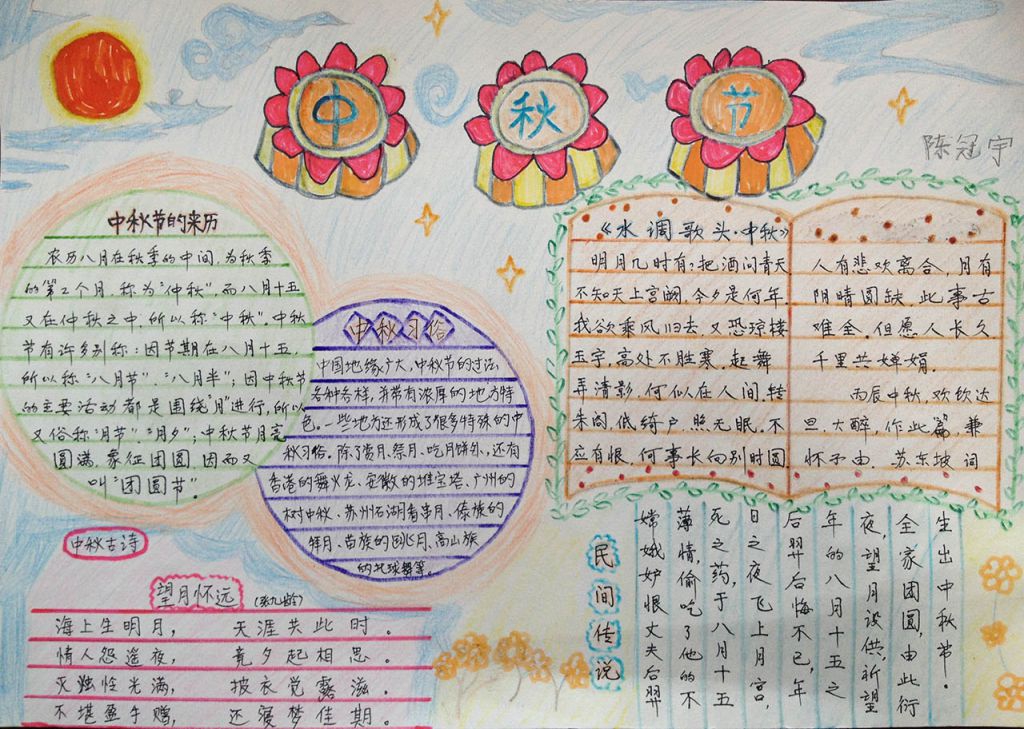 中秋节
陈冠宇
中秋节的来历
农历八月在秋季的中间,为秋季
的第2个月,称为“仲秋”,而八月十五
又在仲秋之中,所以称“中秋”。中秋
节有许多别称:因节期在八月十五,
所以称“八月节”、“八月半”;因中秋节
的主要活动都是围绕“月”进行,所以
又俗称“月节”“月夕”;中秋节月亮
圆满,象征团圆,因而又
叫“团圆节”。
中秋习俗
中国地缘广大,中秋节的习俗
各种各样,并带有浓厚的地方特
色。一些地方还形成了很多特殊的中
秋习俗。除了赏月、祭月、吃月饼外,还有
香港的舞火龙、安徽的堆宝塔、广州的
树中秋、苏州石湖看串月、傣族的
拜月、苗族的跳月、高山族
的托球舞等。
《水调歌头·中秋》
明月几时有?把酒问青天
不知天上宫阙,今夕是何年,
我欲乘风归去,又恐琼楼
玉宇,高处不胜寒,起舞
弄清影,何似在人间,转
朱阁,低绮户,照无眠。不
应有恨,何事长向别时圆
人有悲欢离合,月有
阴晴圆缺,此事古
难全,但愿人长久
千里共婵娟。
丙辰中秋,欢饮达
旦,大醉,作此篇,兼
怀子由。苏东坡词
中秋古诗
望月怀远
海上生明月, 天涯共此时。
情人怨遥夜, 竟夕起相思。
灭烛怜光满, 披衣觉露滋。
不堪盈手赠, 还寝梦佳期。
民间传说
嫦娥妒恨丈夫后羿
薄情,偷吃了他的不
死之药,于八月十五
日之夜飞上月宫,
后羿后悔不已,年
年的八月十五之
夜,望月设供,祈望
全家团圆,由此衍
生出中秋节。